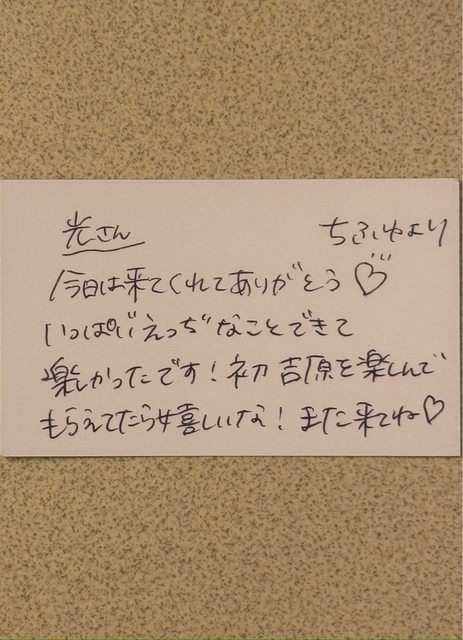 光さん ちふゆより
今日は来てくれてありがとう♡
いっぱいえっぢなことできて
楽しかったです!初吉原を楽しんで
もらえてたら嬉しいな!また来てね♡